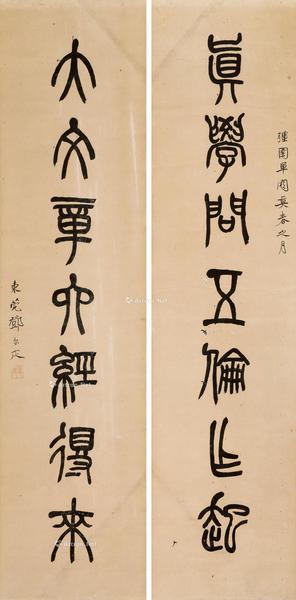 彊圉單閼莫春之月
眞學問五倫乍起
大文章六經得來
東莞鄧尔疋